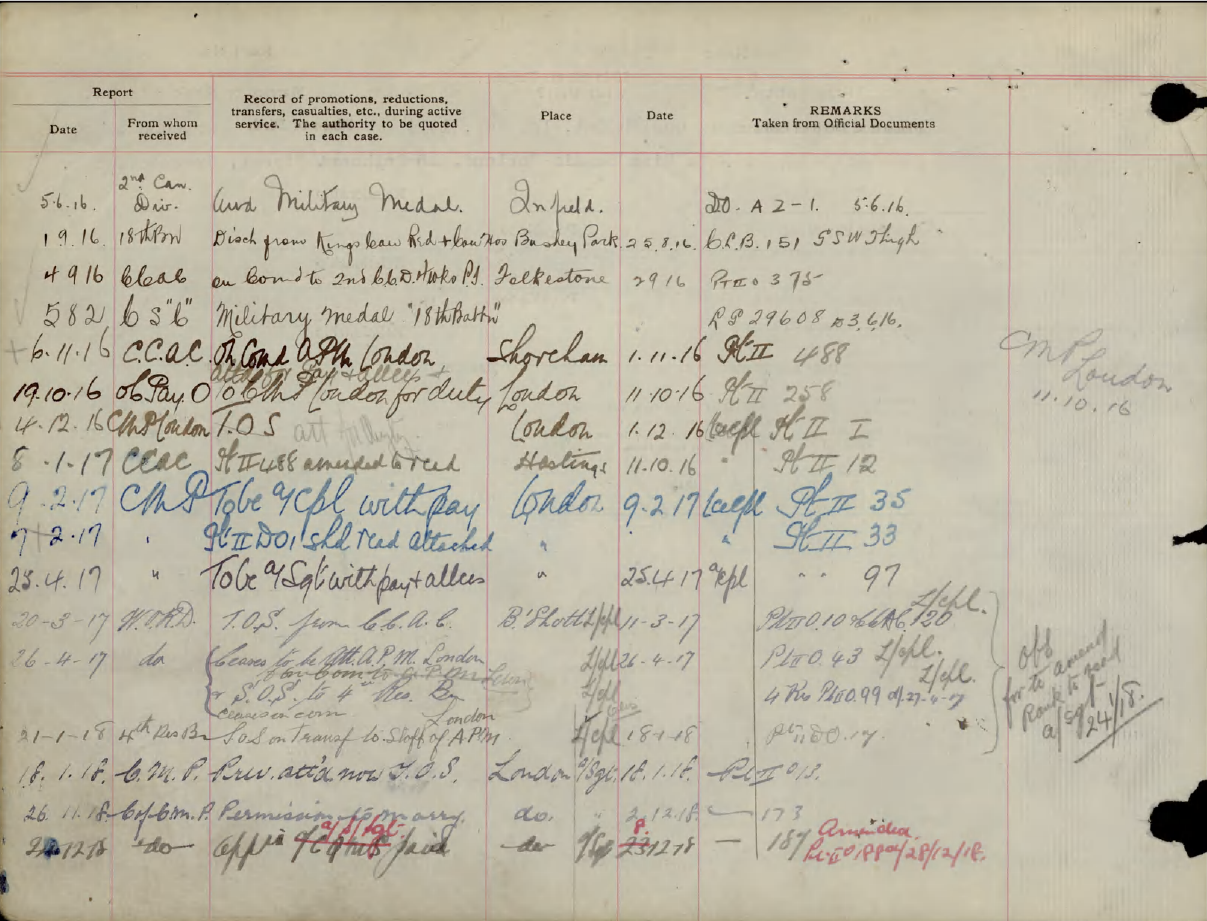 Report
Date
From whom received
Record of promotions, reductions,
transfers, casualties, etc., during active
service. The authority to be quoted
in each case.
Place
Date
REMARKS
Taken from Official Documents
5.6.16. 2nd Can. Div. Awd Military Medal. Infield. DO. A 2-1. 5.6.16.
1 9.16 18th Bn Disch from Kings Can Red + Con Hos Bushey Park. 25.8.16. C.L.B. 151 GSW Thigh
4 9 16 CCAC on Comd to 2nd C.C.D. Folkestone 2 9 16 Pt II O 375
582 C S "C" Military Medal "18th Battn" LG 29608 3.6.16.
6.11.16 C.C.A.C. On Comd A.P.M. London Shoreham 1.11.16 Pt II 488
attd for Pay + allces
19.10.16 Pay O to C.M.P. London for duty London 11.10.16 Pt II 258
CMP
London
11.10.16
4.12.16 CMP London T.O.S att London 1.12.16 Pt II I
8.1.17 CCAC Pt II 488 amended to read Hastings 11.10.16 " Pt II 12
9.2.17 CMP To be a/Cpl with pay London 9.2.17 Pt II 35
7.2.17 " Pt II DO 1 shd read attached " " Pt II 33
25.4.17 " To be a/Sgt with pay + allces " 25.4.17 a/cpl " " 97
20-3-17 W.O.R.D. T.O.S. from C.C.A.C. B'Shott L/cpl 11-3-17 L/cpl.
26-4-17 do Ceases to be Att. A.P.M. London L/cpl 26-4-17 Pt II O. 43 L/cpl.
+ S.O.S. to 4th Res. Bn L/cpl 4 Res Pt II O. 99 d/27-4-17 L/cpl.
ceases on com London
21-1-18 4th Res Bn SoS on Transf to Staff of A.P.M. L/cpl 18-1-18 Pt II DO. 17.
for to amend
Rank to read
a/Sgt
24/1/18.
18.1.18. C.M.P. Prev. att'd now T.O.S. London a/Sgt. 18.1.18. Pt II O 13.
26.11.18. C.M.P. Permission to marry. do. " 2.12.18. — 173
a/S/Sgt. 8.
12 18 do App'd paid do a/Sg 23 12 18 — 187 Amended
Pt II O 188 d/28/12/18.